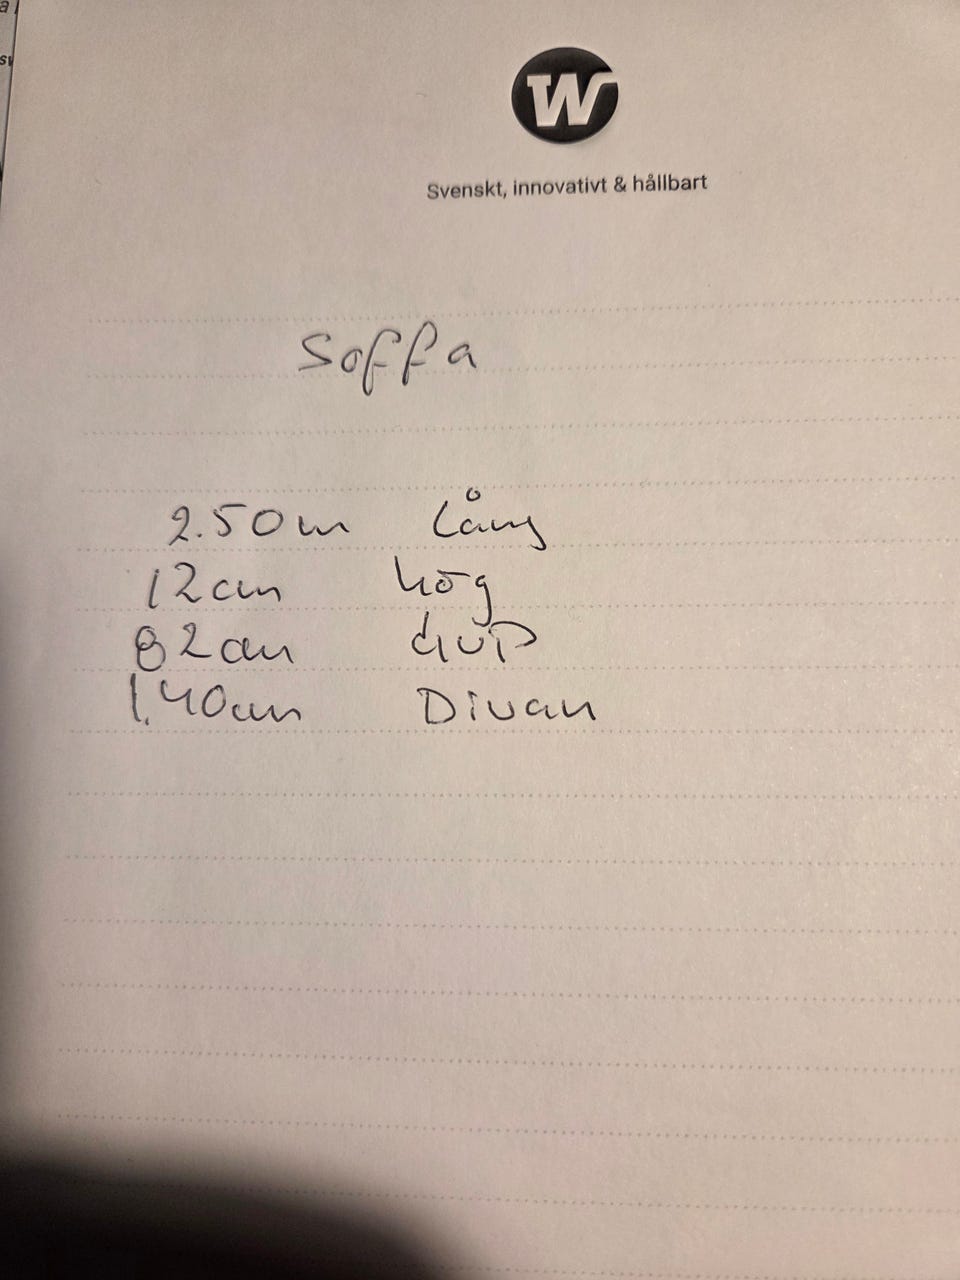 W
Svenskt, innovativt & hållbart
Soffa
2.50m lång
12cm hög
82cm djup
1.40cm Divan